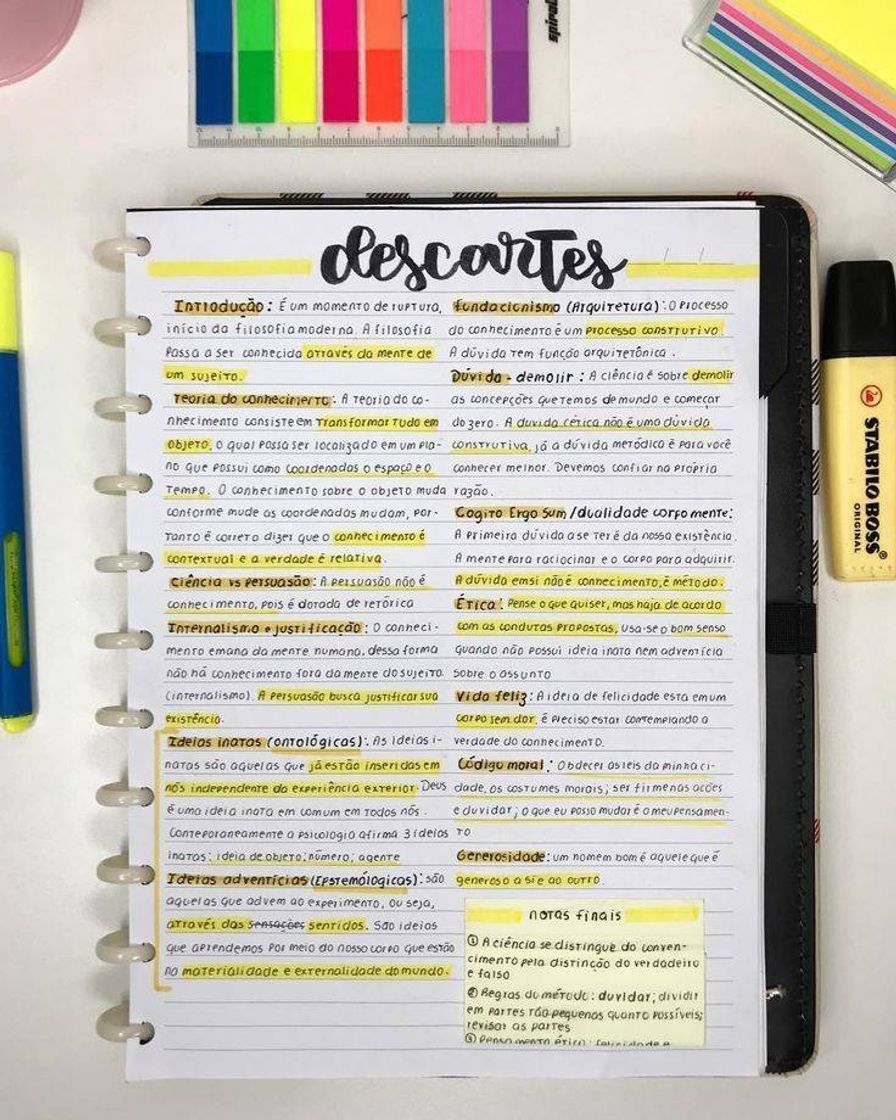 descartes
Introdução: É um momento de ruptura,
início da filosofia moderna. A filosofia
passa a ser conhecida através da mente de
um sujeito.
Teoria do conhecimento: A teoria do co-
nhecimento consiste em transformar tudo em
objeto. O qual possa ser localizado em um pla-
no que possui como coordenadas o espaço e o
tempo. O conhecimento sobre o objeto muda
conforme mude as coordenadas mudam, por-
tanto é correto dizer que o conhecimento é
contextual e a verdade é relativa.
Ciência vs persuasão: A persuasão não é
conhecimento, pois é dotada de retórica
Internalismo e justificação: O conheci-
mento emana da mente humana, dessa forma
não há conhecimento fora da mente do sujeito.
(internalismo). A persuasão busca justificar sua
existência.
Ideias inatas (ontológicas): As ideias i-
natas são aquelas que já estão inseridas em
nós independente da experiência exterior. Deus
é uma ideia inata em comum em todos nós.
Conteporaneamente a psicologia afirma 3 ideias
inatas: ideia de objeto; número; agente
Ideias adventícias (Epstemológicas): são
aquelas que advem ao experimento, ou seja,
através das sensações sentidos. São ideias
que aprendemos por meio do nosso corpo que estão
na materialidade e externalidade do mundo.
fundacionismo (Arquitetura): O processo
do conhecimento é um processo construtivo.
A dúvida tem função arquitetônica.
Dúvida - demolir: A ciência é sobre demolir
as concepções que temos de mundo e começar
do zero. A duvida cética não é uma dúvida
construtiva, já a dúvida metódica é para você
conhecer melhor. Devemos confiar na própria
razão.
Cogito Ergo Sum/dualidade corpo mente:
A primeira dúvida a se ter é da nossa existência.
A mente para raciocinar e o corpo para adquirir.
A dúvida em si não é conhecimento, é método.
Ética: Pense o que quiser, mas haja de acordo
com as condutas propostas, usa-se o bom senso
quando não possui ideia inata nem adventícia
sobre o assunto
Vida feliz: A ideia de felicidade esta em um
corpo sem dor, é preciso estar contemplando a
verdade do conhecimento.
Código moral: Obdecer as leis da minha ci-
dade, os costumes morais; ser firme nas acões
e duvidar; o que eu posso mudar é o meu pensamen-
to
Generosidade: um homem bom é aquele que é
generoso a si e ao outro.
notas finais
① A ciência se distingue do conven-
cimento pela distinção do verdadeiro
e falso
② Regras do método: duvidar; dividir
em partes tão pequenas quanto possíveis;
revisar as partes
③ Pensamento ético: felicidade e
STABILO BOSS
ORIGINAL